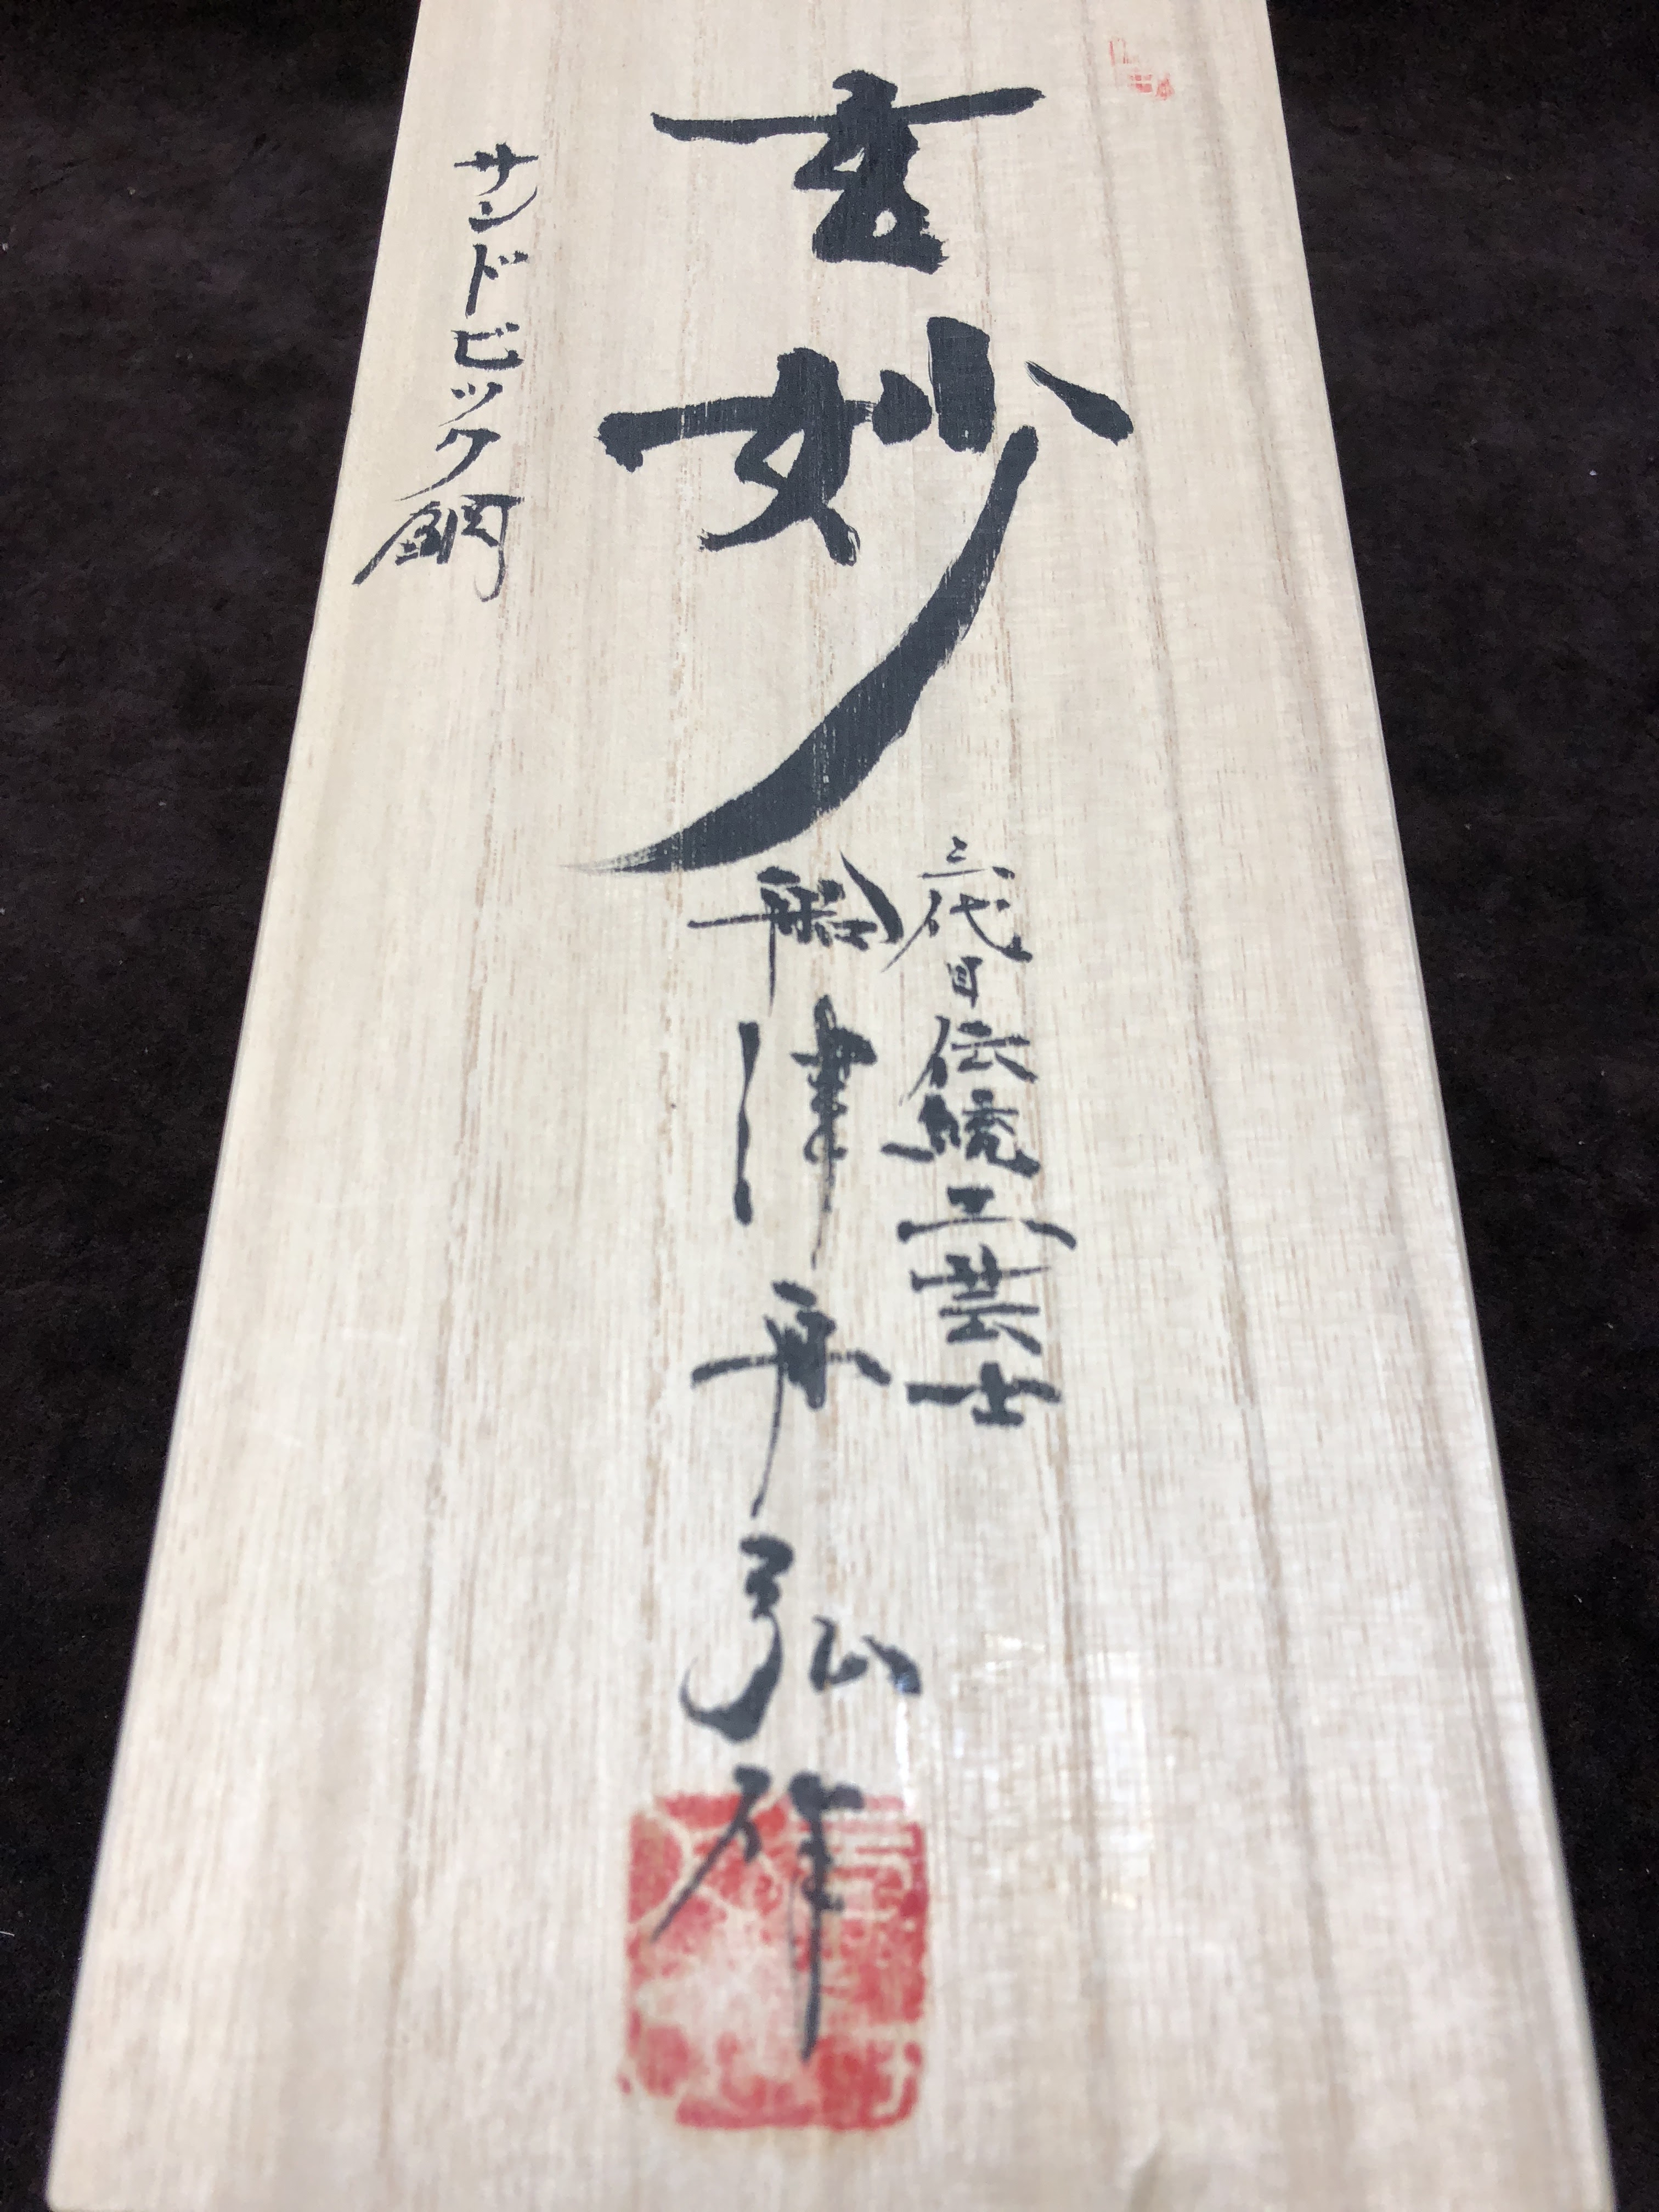 玄妙
三代目伝統工芸士
船津舟弘祥
サンドビック鋼